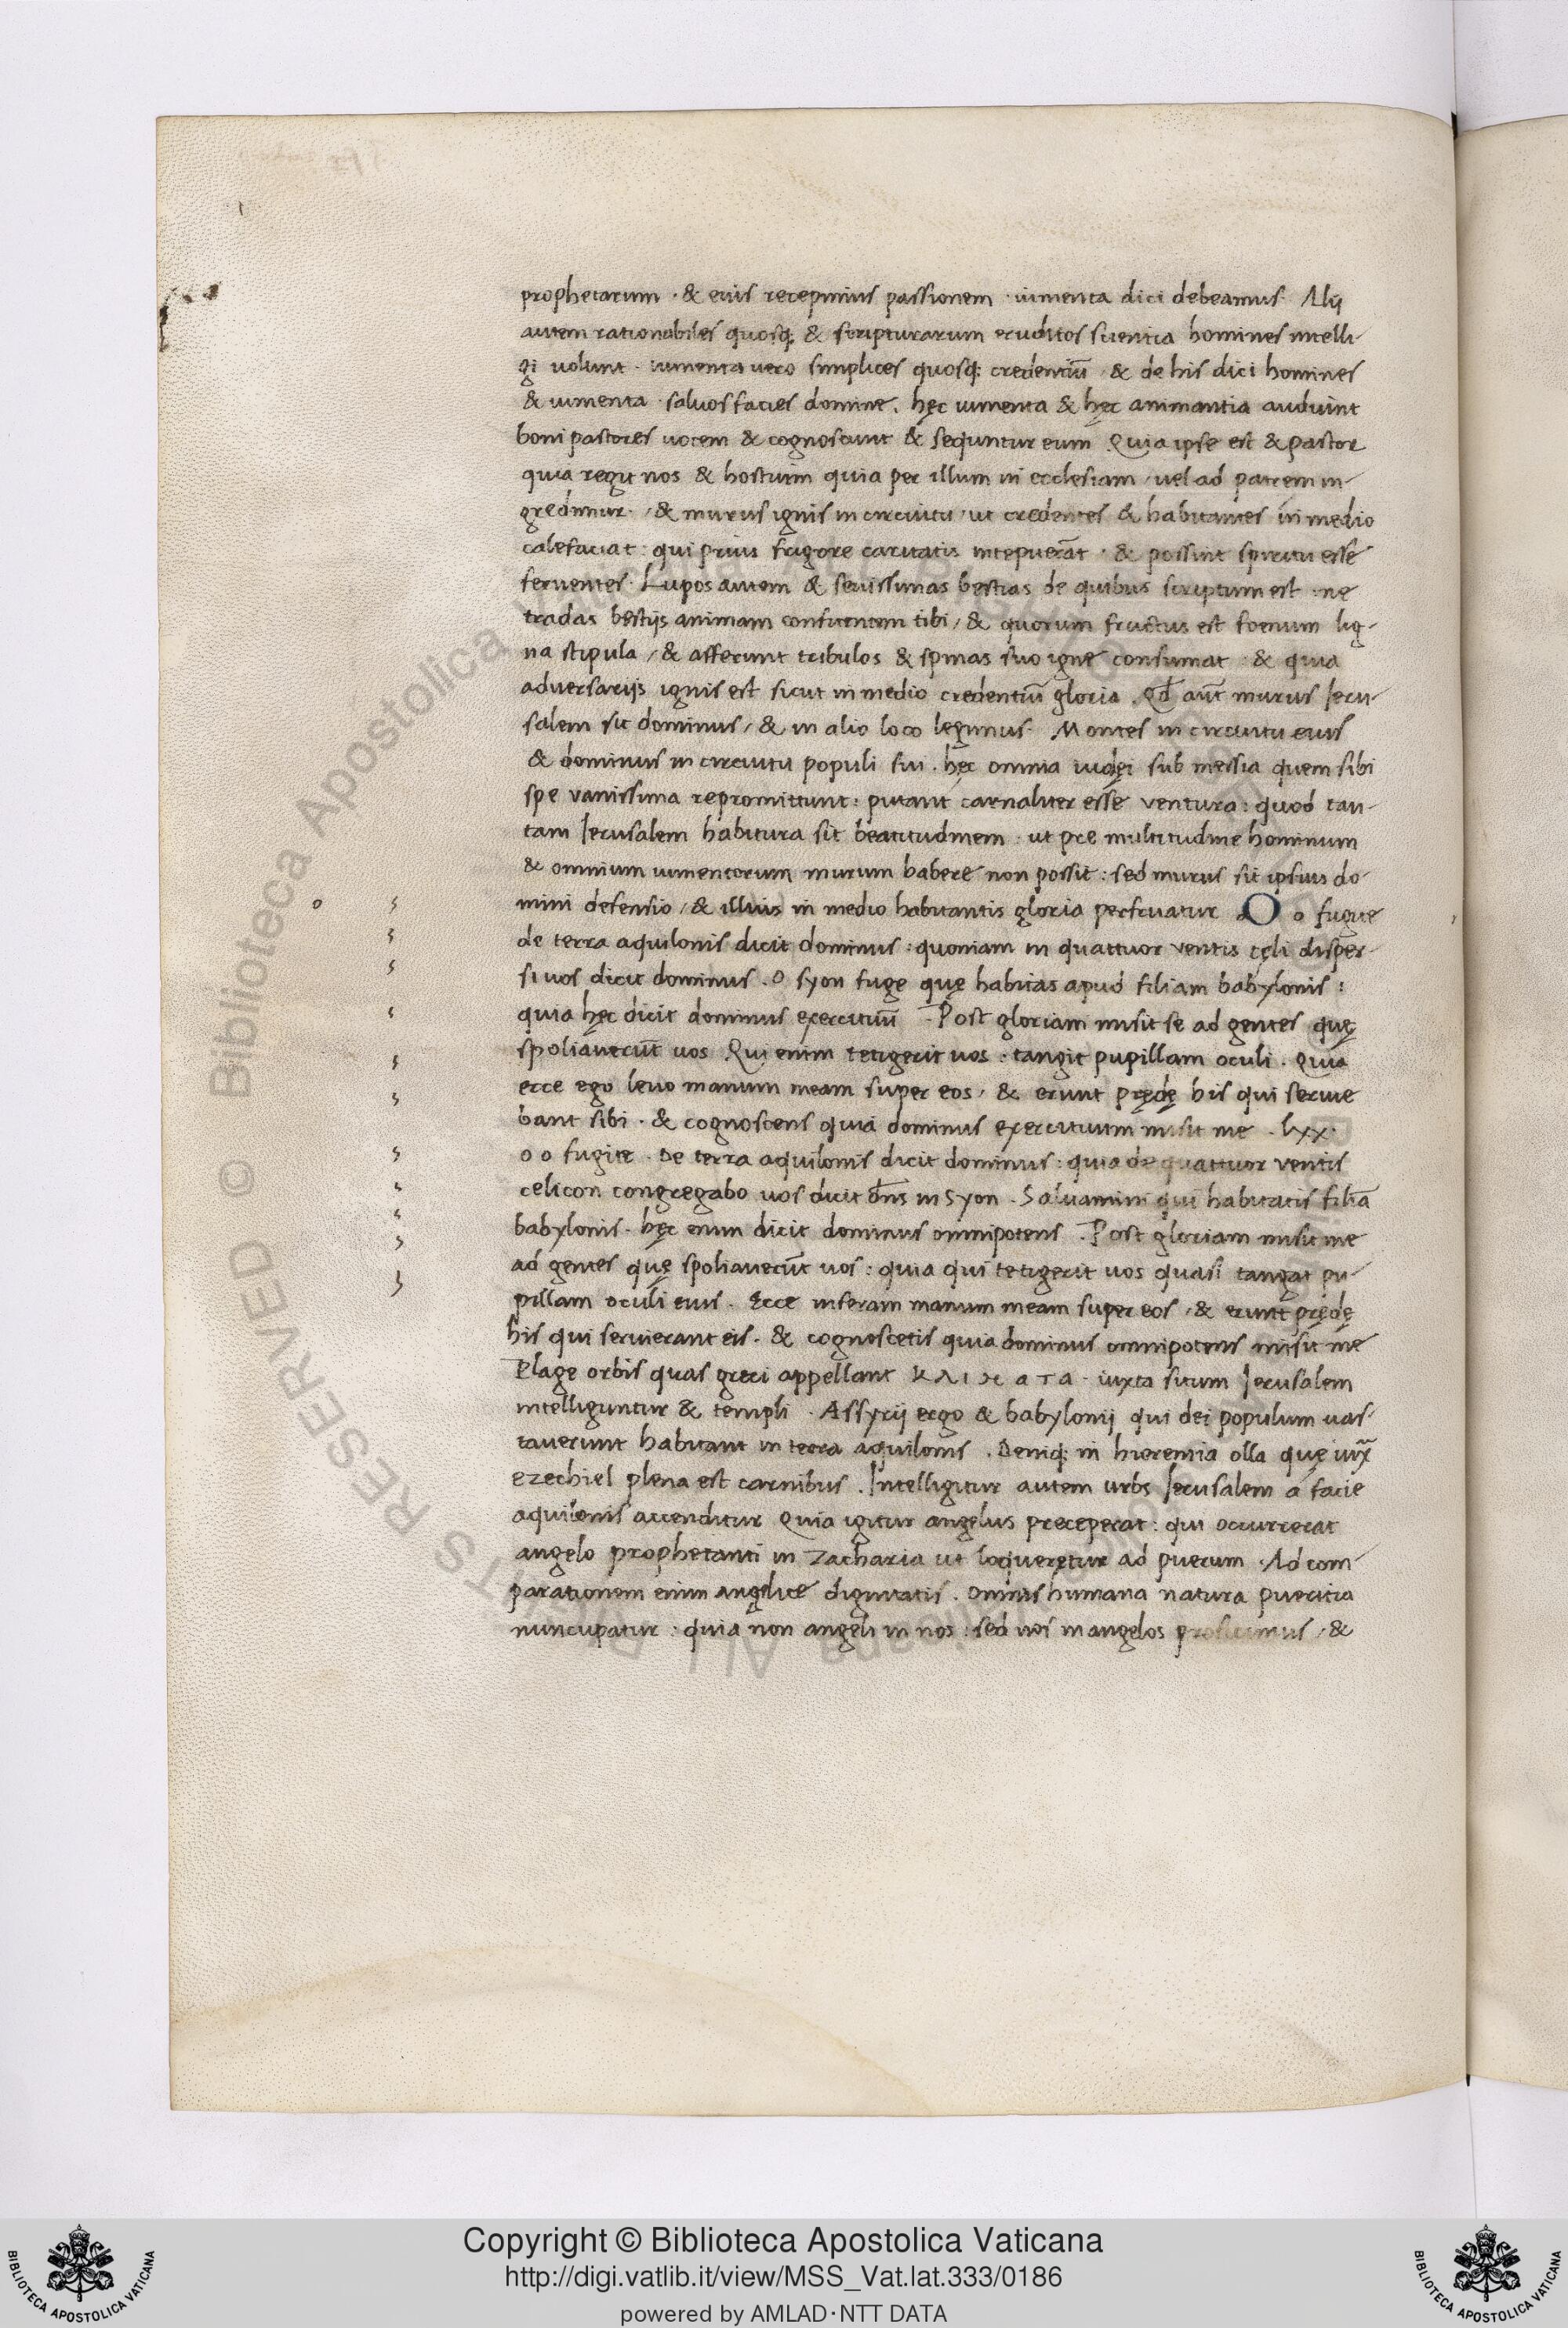 prophetarum · & eius recepimus passionem · iumenta dici debeamus · Alij
autem rationabiles quosq; & scripturarum eruditos scientia homines intelli-
gi volunt · iumenta uero simplices quosq; credentiū · & de his dici homines
& iumenta · saluos facies domine . hęc iumenta & hęc animantia audiunt
boni pastores uocem & cognoscunt & sequntur eum . Quia ipse est & pastor
quia regit nos & hostium quia per illum in ecclesiam / uel ad patrem in-
gredimur · / & murus ignis in circuitu / ut credentes & habitantes in medio
calefaciat : qui prius frigore caritatis intepuerāt · & possint spiritu esse
feruentes · Lupos autem & seuissimas bestias de quibus scriptum est : ne
tradas bestijs animam confitentem tibi / & quorum fructus est foenum lig-
na stipula / & afferunt tribulos & spinas suo igne consumat : & quia
adversarijs ignis est sicut in medio credentiū gloria . Qđ aūt murus Ieru-
salem sit dominus / & in alio loco legimus · Montes in circuitu eius
& dominus in circuitu populi sui . hęc omnia iudęi sub messia quem sibi
spe vanissima repromittunt : putant carnaliter esse ventura : quod tan-
tam Ierusalem habitura sit beatitudinem · ut pre multitudine hominum
& omnium iumentorum murum babere non possit : sed murus sit ipsius do-
mini defensio / & illius in medio habitantis gloria perfruatur O o fugite
de terra aquilonis dicit dominus : quoniam in quattuor ventis cęli disper-
si uos dicit dominus . O syon fuge quę habitas apud filiam babylonis :
quia hęc dicit dominus exercituū . Post gloriam misit se ad gentes quę
spoliauerūt uos Qui enim tetigerit uos : tangit pupillam oculi . Quia
ecce ego leuo manum meam super eos / & erunt prędę his qui seruie
bant sibi · & cognoscens quia dominus exercituum misit me . lxx ·
o o fugite . De terra aquilonis dicit dominus : quia de quattuor ventis
celicon congregabo uos dicit dn̄s in syon . Saluamini qui habitatis filiā
babylonis . hęc enim dicit dominus omnipotens . Post gloriam misit me
ad gentes quę spoliauerūt uos : quia qui tetigerit uos quasi tangat pu-
pillam oculi eius . Ecce inferam manum meam super eos / & erunt prędę
his qui seruierant eis . & cognoscetis quia dominus omnipotens misit me
Plage orbis quas greci appellant κλιματα · iuxta situm Ierusalem
intelliguntur & templi . Assyrij ergo & babylonij qui dei populum uas-
tauerunt habitant in terra aquilonis . Deniq; in hieremia olla quę iux̄
ezechiel plena est carnibus . Intelligitur autem urbs Ierusalem a facie
aquilonis accenditur Quia igitur angelus preceperat : qui occurrerat
angelo prophetanti in Zacharia ut loqueretur ad puerum . Ad com-
parationem enim angelice dignitatis . omnis humana natura pueritia
nuncupatur : quia non angeli in nos : sed nos in angelos proficimus / &
Copyright © Biblioteca Apostolica Vaticana
http://digi.vatlib.it/view/MSS_Vat.lat.333/0186
powered by AMLAD·NTT DATA